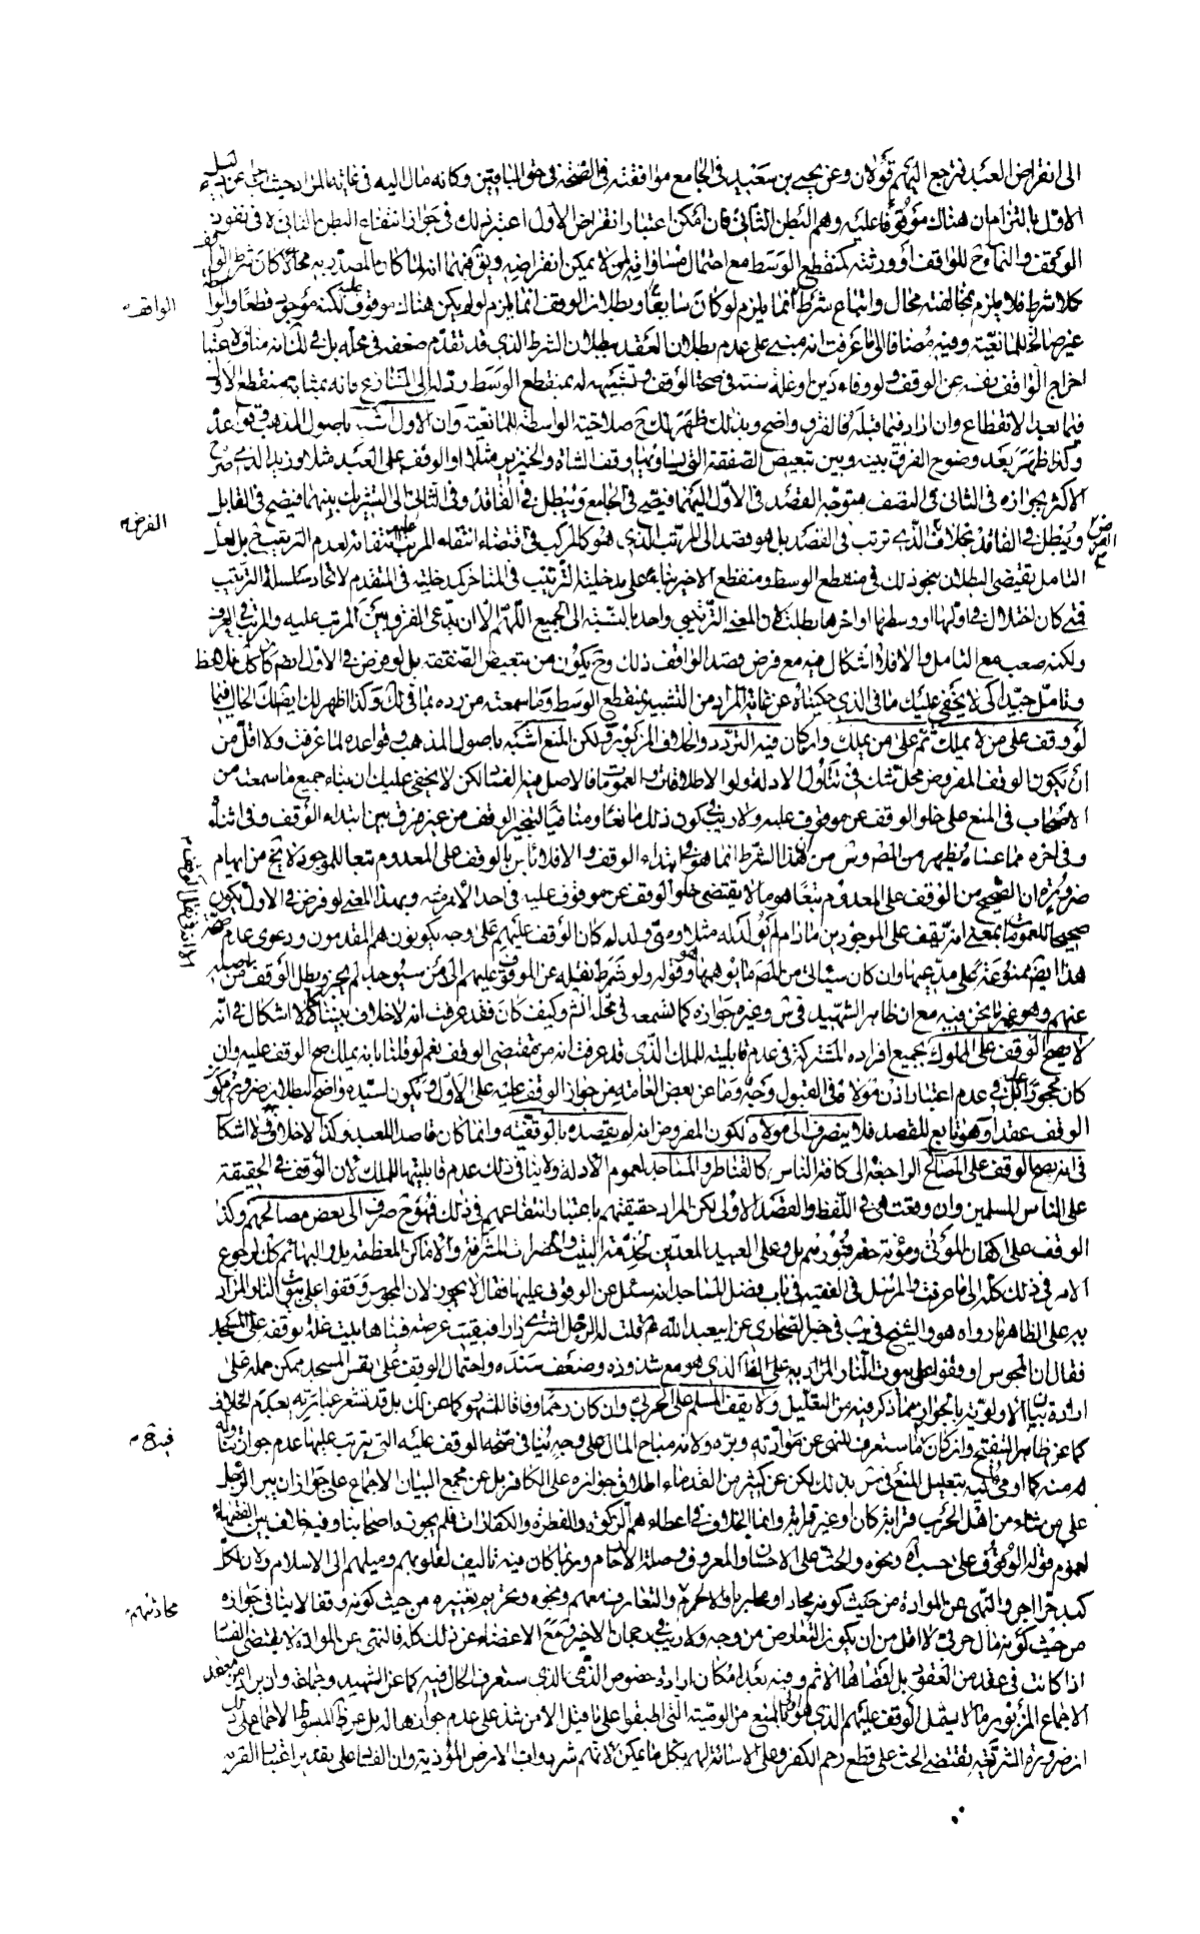 الى انقراض العبد فترجع اليهم قولان وعن يحيى بن سعيد في الجامع موافقته في الصحة في حق الباقين وكانه مال اليه في غاية المراد حيث اجاب عن دليل
الاول بالتزام ان هناك موقوفا عليه وهم البطن الثاني فان امكن اعتبار انقراض الاول اعتبر ذلك في جواز انتفاع البطن الثاني لا في نفوذ
الوقف والنماء ح للواقف او ورثته كمنقطع الوسط مع احتمال مساواته لمن لا يمكن انقراضه
كلا شرط فلا يلزم مخالفته محال واتباع شرطه انما يلزم لو كان سابقا وبطلان الوقف انما يلزم لو لم يكن هناك موقوف عليه لكنه موجود قطعا
الواقف
غير صالحة للمانعية وفيه مضافا الى ما عرفت انه مبني على عدم بطلان العقد ببطلان الشرط الذي قد تقدم ضعفه في محله بل في لك انه مناف لاعتبار
اخراج الواقف نفسه عن الوقف ولو وفاء دين او غلة سنة في صحة الوقف وتشبيهه له بمنقطع الوسط رده الى التنازع بانه بمثابة منقطع الاول
فيما بعد الانقطاع وان اراد فيما قبله فالفرق واضح وبذلك ظهر لك ح صلاحية الواسطة للمانعية وان الاول اشبه باصول المذهب وقواعده
وكذا ظهر بعد وضوح الفرق بينه وبين تبعيض الصفقة التي يساوقها وقف الشاة والخنزير مثلا او الوقف على العبد مثلا وزيد الذي صرح
الاكثر بجوازه في الثاني في النصف متوجه القصد في الاول اليهما فيصح في الجامع ويبطل في الفاقد وفي الثاني الى التشريك بينهما فيصح في القابل
الفرض
ويبطل في الفاقد بخلاف الذي ترتب في القصد بل هو قصد الى المرتب الذي هو كالمركب في اقتضاء انتفاء المرتب عليه انتفائه لعدم الترتيب ح بل لعل
التامل يقتضي البطلان بنحو ذلك في منقطع الوسط ومنقطع الاخر بناء على مدخلية الترتيب في المتاخر كمدخليته في المتقدم لاتحاد سلسلة الترتيب
فمتى كان اختلال في اولها او وسطها او اخرها بطلت لان المعنى الترتيبي واحد بالنسبة الى الجميع اللهم الا ان يدعى الفرق بين المرتب عليه والمرتب في العرف
ولكنه صعب مع التامل والا فلا اشكال فيه مع فرض قصد الواقف ذلك وح يكون من تبعيض الصفقة بل لو فرض في الاول
وتامل جيدا كي لا يخفى عليك ما في الذي حكيناه عن غاية المراد من التشبيه بمنقطع الوسط وما سمعته من رده بما في لك وكذا اظهر لك ايضا الحال فيما
لو وقف على من لا يملك ثم على من يملك وان كان فيه التردد والخلاف المزبور ولكن المنع اشبه باصول المذهب وقواعده لما عرفت ولا اقل من
ان يكون الوقف المفروض محل شك في تناول الادلة ولو الاطلاقات والعمومات فالاصل فيه الفساد لكن لا يخفى عليك ان بناء جميع ما سمعته من
الاصحاب في المنع على خلو الوقف عن موقوف عليه ولا ريب في كون ذلك مانعا ومنافيا لتنجيز الوقف من غير فرق بين ابتداء الوقف وفي اثنائه
وفي اخره مما عساه يظهر من المص وش من ان هذا الشرط انما هو في ابتداء الوقف والا فلا باس بالوقف على المعدوم تبعا للموجود لا يخ من ايهام
ضرورة ان الصحيح من الوقف على المعدوم تبعا هو ما لا يقتضي خلو الوقف عن موقوف عليه في احد الازمنة وبهذا المعنى لو فرض في الاول يكون
صحيحا للعمومات بمعنى انه يقف على الموجودين ما دام لم يولد له مثلا ومتى ولد له كان الوقف عليهم على وجه يكونون هم المقدمون ودعوى عدم صحة
هذا ايضا ممنوعة على مدعيها وان كان سياتي من المص ما يوهمها وهو قوله ولو شرط نقله عن الموقوف عليهم الى من سيوجد لم يجز وبطل الوقف
عنهم وهو غير ما نحن فيه مع ان ظاهر الشهيد في س وغيره جوازه كما تسمعه في محله انش وكيف كان فقد عرفت انه لا خلاف بيننا كما لا اشكال في انه
لا يصح الوقف على المملوك بجميع افراده المشتركة في عدم قابليته للملك الذي قد عرفت انه من مقتضى الوقف نعم لو قلنا بانه يملك صح الوقف عليه وان
كان محجورا عليه لكن في عدم اعتبار اذن مولاه في القبول وجه وما عن بعض العامة من جواز الوقف عليه على الاول ويكون لسيده واضح البطلان ضرورة كون
الوقف عقدا وهو تابع للقصد فلا ينصرف الى مولاه لكون المفروض انه لم يقصده بالوقفية وانما كان قاصد اللعبد وكذا لا خلاف ولا اشكال
في انه يصح الوقف على المصالح الراجعة الى كافة الناس كالقناطر والمساجد لعموم الادلة ولا ينافي ذلك عدم قابليتها للملك لان الوقف في الحقيقة
على الناس للمسلمين وان وقعت هي في اللفظ والقصد الاولي لكن المراد حقيقتهم باعتبار انتفاعهم في ذلك فهو ح صرف الى بعض مصالحهم وكذا
الوقف على اكفان الموتى ومؤنة حفر قبورهم بل وعلى العبيد المعدين لخدمة البيت والحضرات المشرفة والاماكن المعظمة بل والبهائم كل لرجوع
الامر في ذلك كله الى ما عرفت والمرسل في الفقيه في باب فضل المساجد انه سئل عن الوقوف عليها فقال لا يجوز لان المجوس وقفوا على بيوت النار المراد
به على الظاهر ما رواه هو والشيخ في يب في خبر الصحاري عن ابيعبد الله ع قلت له الرجل اشترى دارا فبقيت عرصة فبناها بيت غلة يوقفه على المسجد
فقال ان المجوس اوقفوا على بيوت النار المراد به على الظ الذي هو مع شذوذه وضعف سنده واحتمال الوقف على نفس المسجد ممكن حمله على
ارادة بيان الاولوية بالجواز مما ذكر فيه من التعليل ولا يقف المسلم على الحربي وان كان رحما وفاقا للمشهور كما عن لك بل قد تشعر عبارته بعدم الخلاف
كما عن ظاهر التنقيح وان كان ما ستعرف للنهي عن موادته وبره ولانه مباح المال على وجه ينافي صحة الوقف عليه التي يترتب عليها عدم جواز تناوله
فيه ح
له منه كما اومى اليه بتعليل المنع في س بذلك لكن عن كثير من القدماء اطلاق جوازه على الكافر بل عن مجمع البيان الاجماع على جواز ان يبر الرجل
على من شاء من اهل الحرب قرابة كان او غير قرابة وانما الخلاف في اعطاءهم الزكوة والفطرة والكفارات فلم يجوزه اصحابنا وفيه خلاف بين الفقهاء
لعموم قوله الوقوف على حسب اه ونحوه والحث على الاحسان والمعروف وصلة الارحام وربما كان فيه تاليف لقلوبهم وميلهم الى الاسلام ولان لكل
كبد حراء اجر والنهي عن الموادة من حيث كونه محادا او محاربا والا لحرم والتعارف معهم ونحوه وتحريم تغييره من حيث كونه وقفا لا ينافي جوازه
محادثتهم
من حيث كونه مال حربي لا اقل من ان يكون التعارض من وجه ولا ريب في رجحان الاخير ومع الاغضاء عن ذلك كله فالنهي عن الموادة لا يقتضي الفساد
اذا كانت في عقد من العقود بل اقصاها الاثم وفيه بعد امكان ارادة خصوص الذمي الذي ستعرف الحال فيه كما عن الشهيد وجماعة
الاجماع المزبور بما لا يشمل الوقف عليهم الذي هو اولى بالمنع من الوصية التي اطبقوا على ما قيل الا من شذ على عدم جوازها له بل عن ظ المبسوط الاجماع على ذلك
ان ضرورة الشرعية يقتضي الحث على قطع رحم الكفر وعلى الاسائة لهم بكل ما يمكن لانهم شر دواب الارض المؤذية وان الفساد على تقدير اعتبار القربة